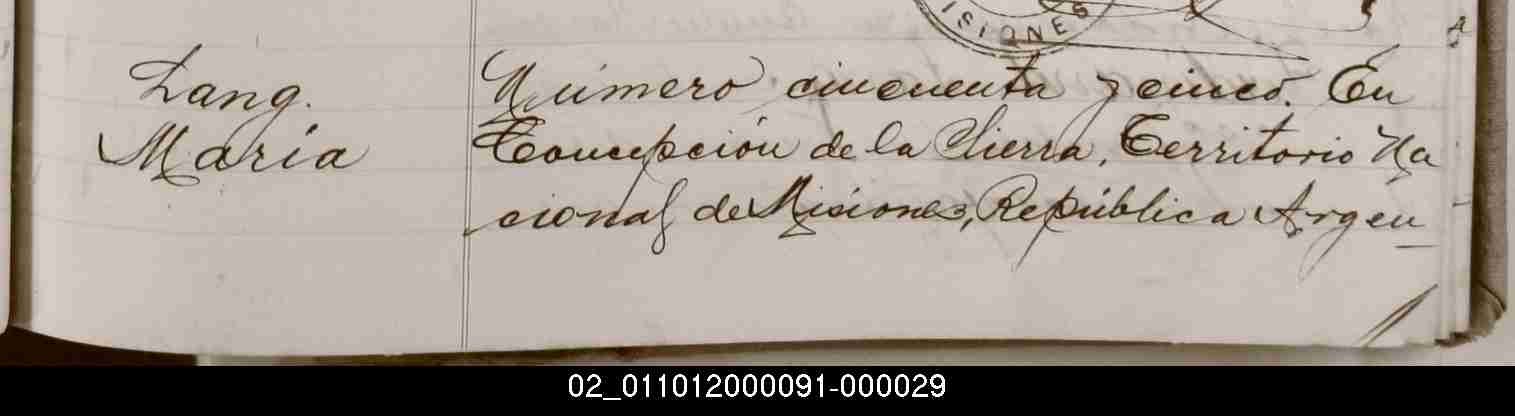 ISIONES
Lang.
María
Número cincuenta y cinco. En
Concepción de la Sierra, Territorio Na
cional de Misiones, República Argen
02_011012000091-000029